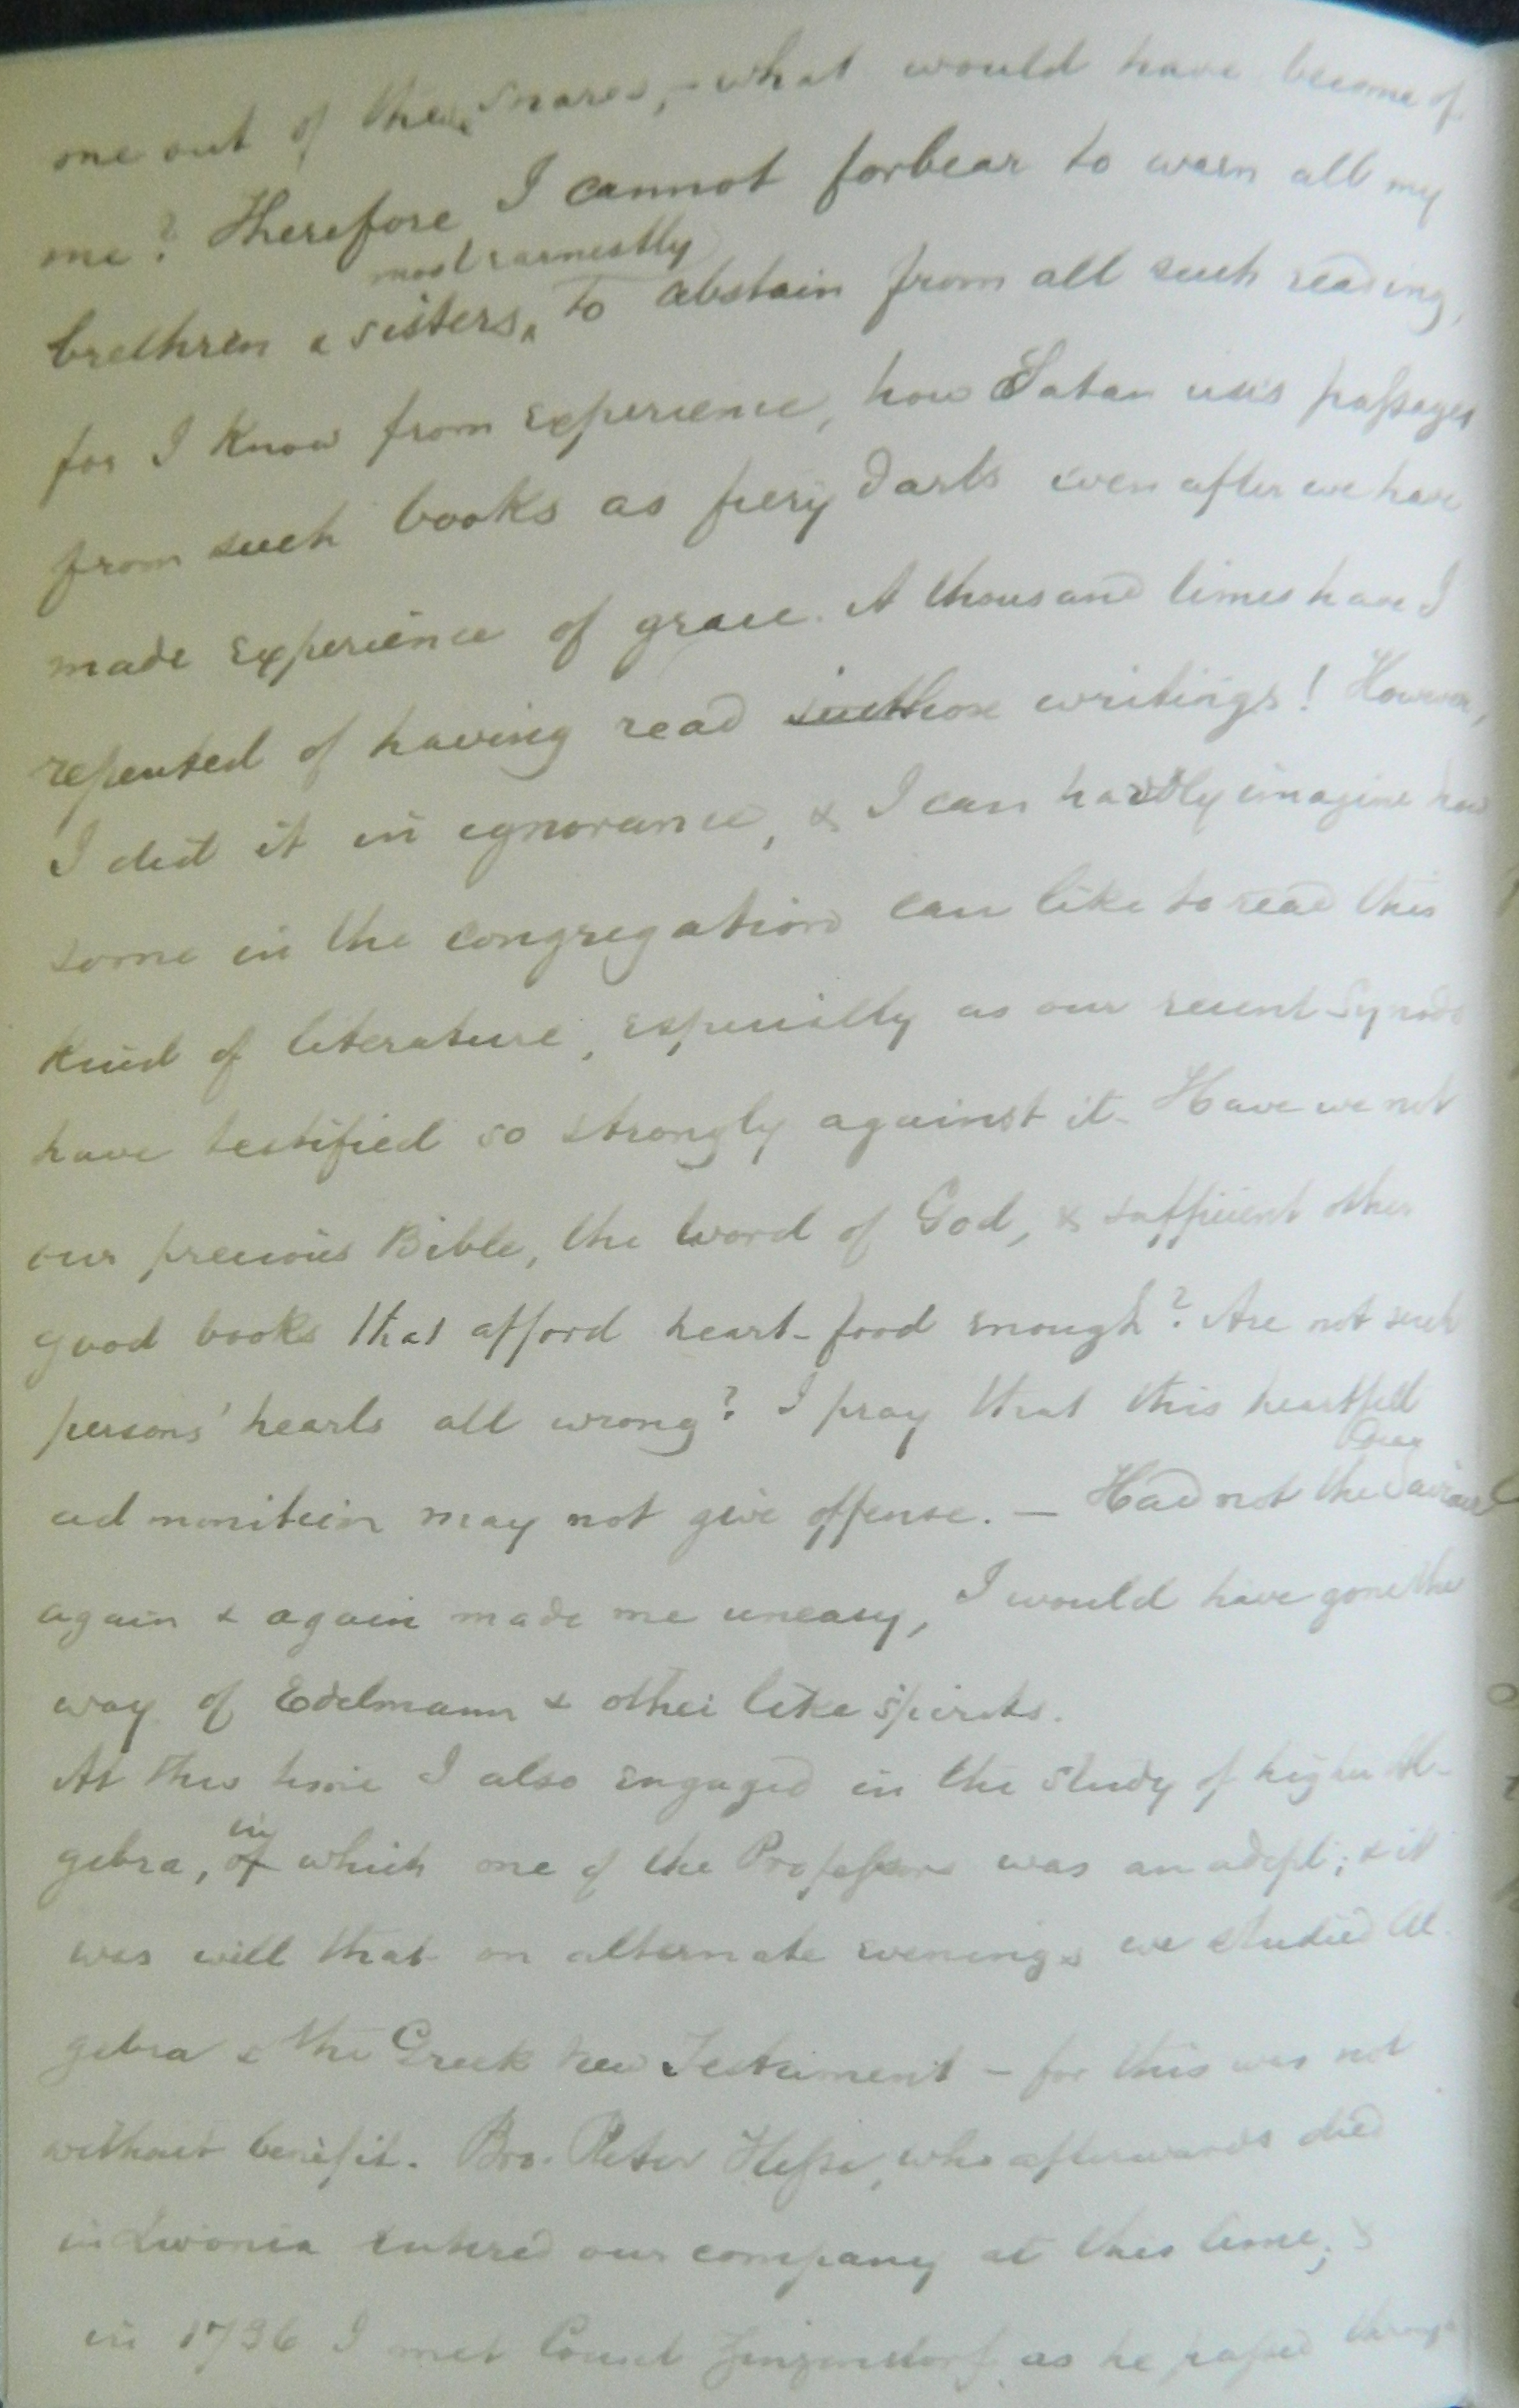 me out of these snares, - what would have become of
me? Therefore I cannot forbear to warn all my
most earnestly
brethren & sisters, to abstain from all such reading,
for I know from experience, how Satan uses passages
from such books as fiery darts even after we have
made experience of grace. A thousand times have I
repented of having read such those writings! However,
I did it in ignorance, & I can hardly imagine how
some in the congregation can like to read this
kind of literature, especially as our recent Synods
have testified so strongly against it. Have we not
our precious Bible, the word of God, & sufficient other
good books that afford heart-food enough? Are not such
persons' hearts all wrong? I pray that this heartfelt
admonition may not give offense. — Had not the dear Saviour
again & again made me uneasy, I would have gone the
way of Edelmann & other like spirits.
At this time I also engaged in the study of higher Al-
gebra, of in which one of the Professors was an adept; & it
was well that on alternate evenings we studied Al-
gebra & the Greek New Testament - for this was not
without benefit. Bro. Peter Hesse, who afterwards died
in Livonia entered our company at this time; &
in 1736 I met Count Zinzendorf as he passed through